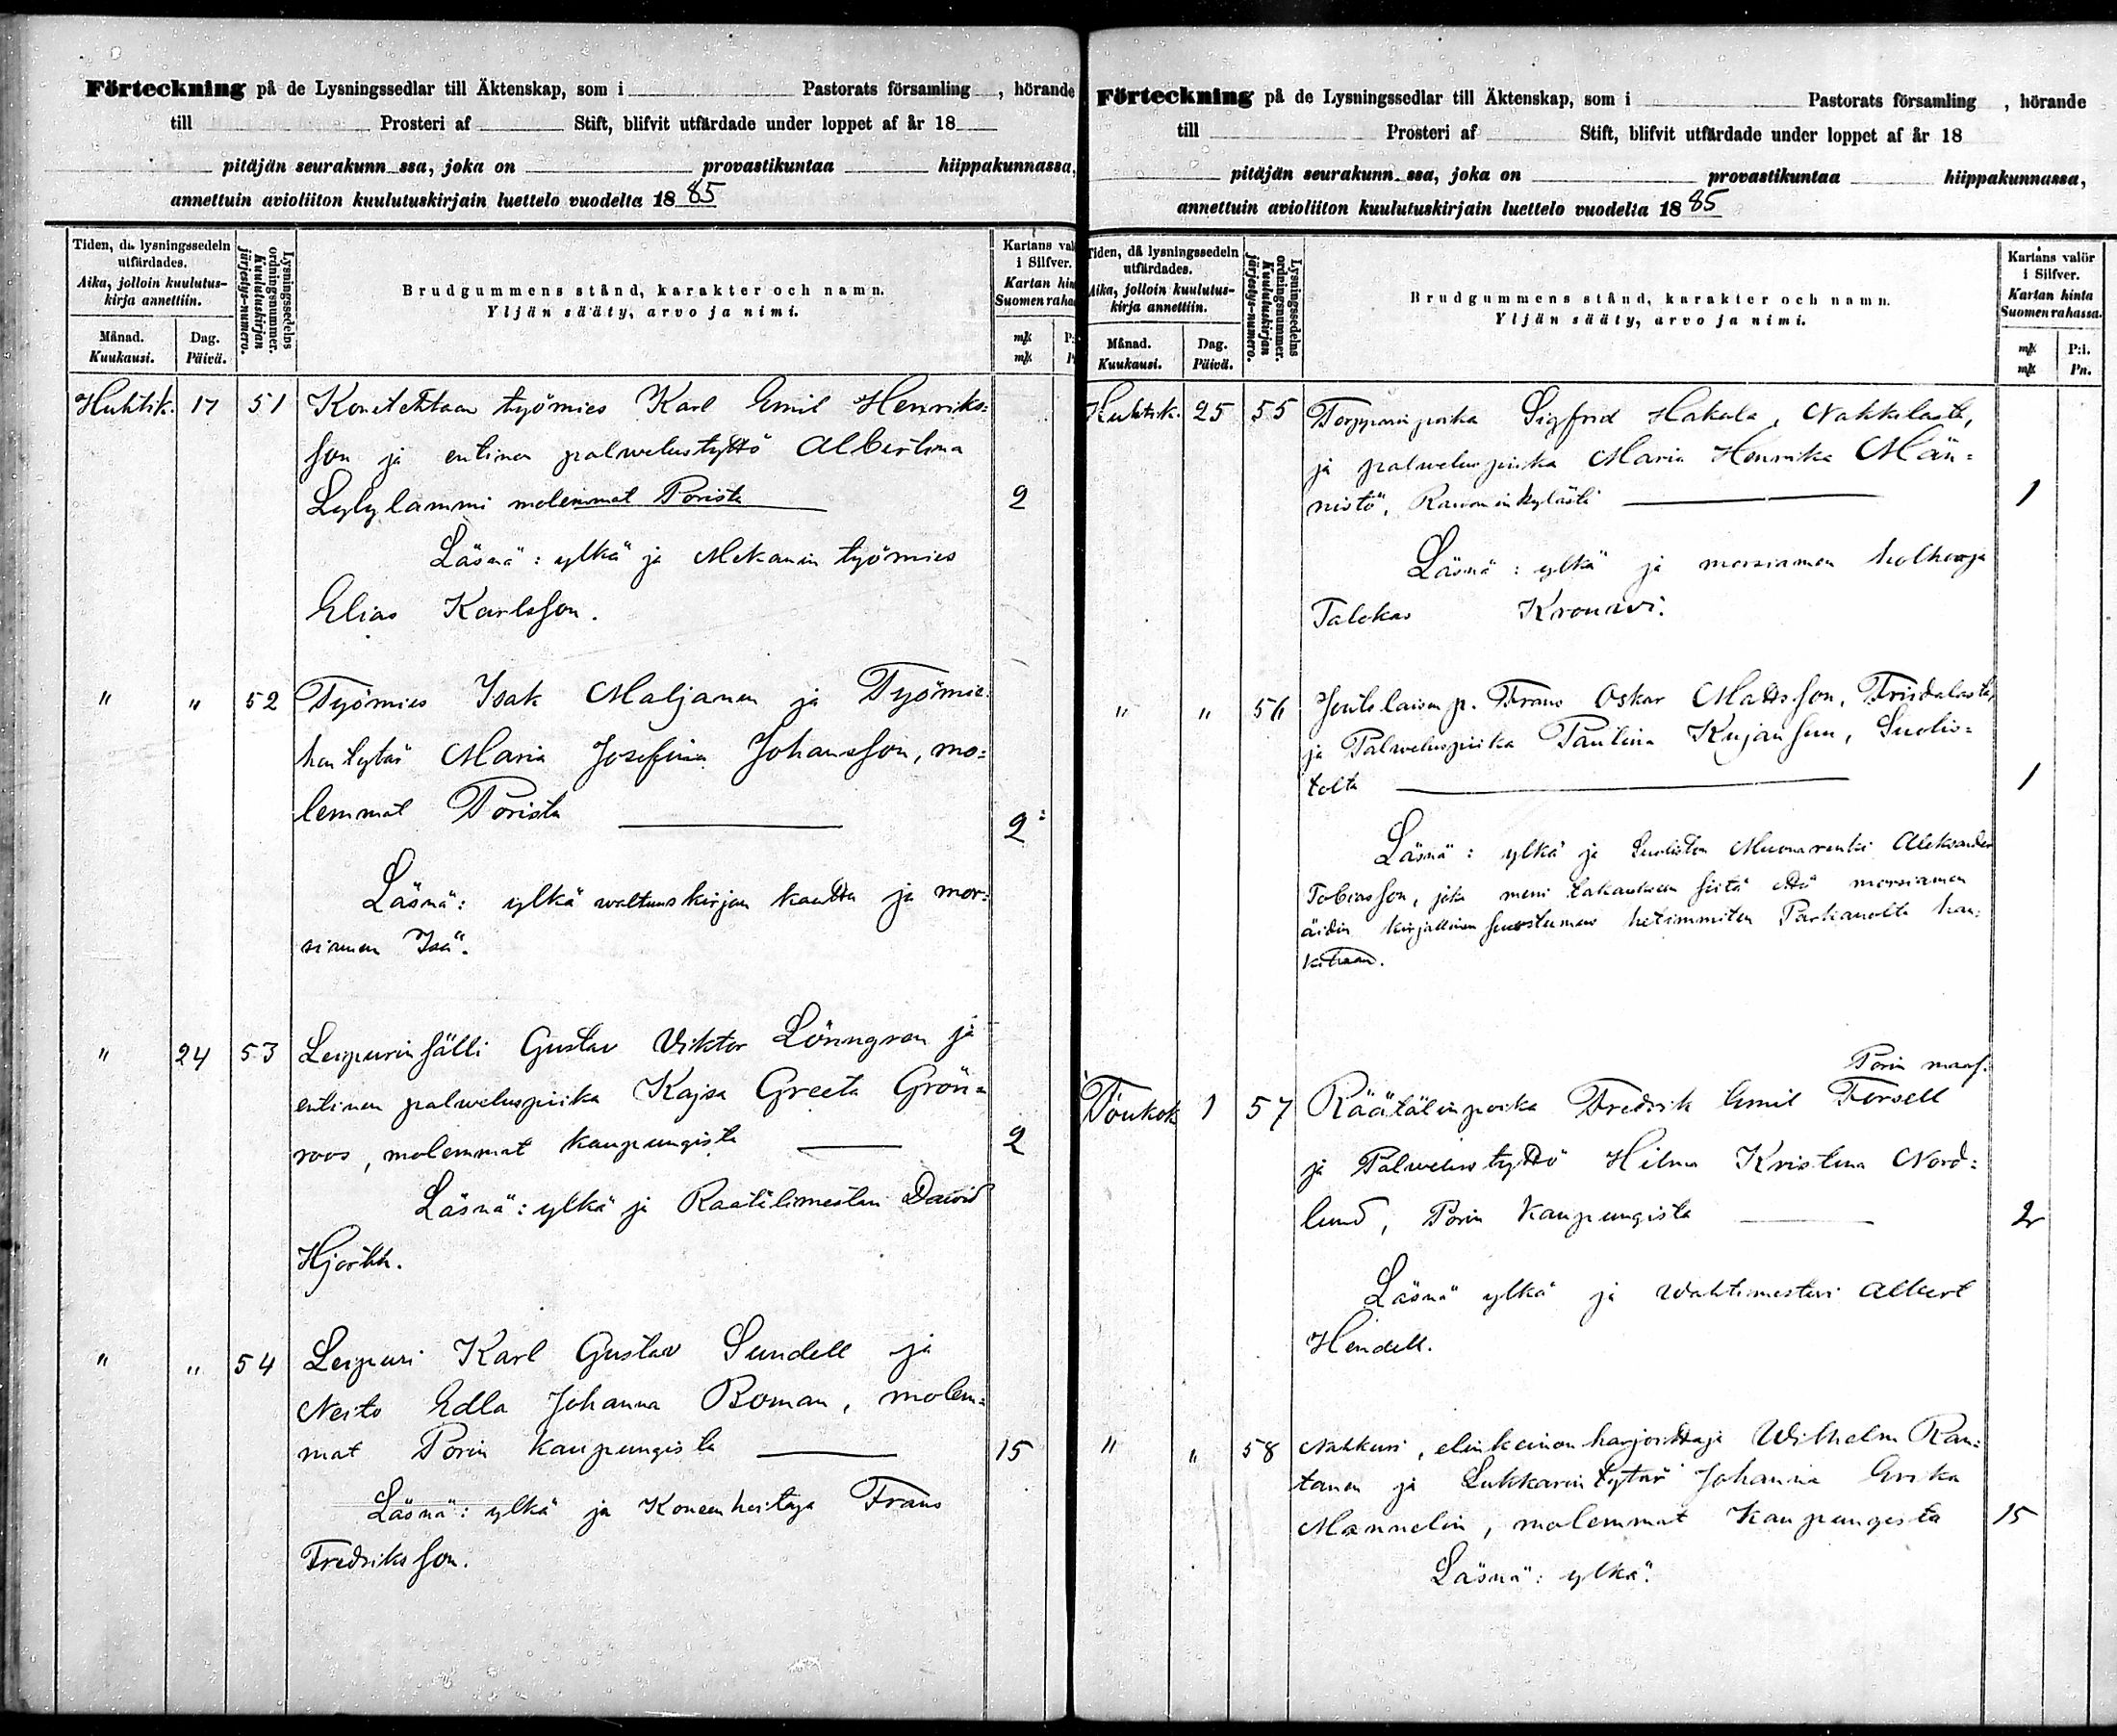 Förteckning på de Lysningssedlar till Äktenskap, som i Pastorats församling, hörande
till Prosteri af Stift, blifvit utfärdade under loppet af år 18
pitäjän seurakunn ssa, joka on provastikuntaa hiippakunnassa,
annettuin avioliiton kuulutuskirjain luettelo vuodelta 1885
Tiden, då lysningssedeln utfärdades.
Aika, jolloin kuulutus-kirja annettiin.
Månad. Kuukausi.
Dag. Päivä.
Lysningssedelns ordningsnummer.
Kuulutuskirjan järjestys-numero.
Brudgummens stånd, karakter och namn.
Yljän sääty, arvo ja nimi.
Kartans val
i Silfver.
Kartan hin
Suomen raha
Huhtik. 17 51 Konetehtaan työmies Karl Emil Henriks:
son ja entinen palwelustyttö Albertina
Lylylammi molemmat Porista 2
Läsnä: ylkä ja Mekanin työmies
Elias Karlsson.
" " 52 Työmies Isak Maljanen ja Työmie:
hen tytär Maria Josefina Johansson, mo:
lemmat Porista 2
Läsnä: ylkä waltuuskirjan kautta ja mor:
siamen Isä.
" 24 53 Leipurin sälli Gustav Viktor Lönngren ja
entinen palweluspiika Kajsa Greeta Grön:
roos, molemmat kaupungista 2
Läsnä: ylkä ja Räätälimestari Dawid
Hjorth.
" " 54 Leipuri Karl Gustav Sundell ja
Neito Edla Johanna Boman, molem:
mat Porin kaupungista 15
Läsnä: ylkä ja Koneenhoitaja Frans
Fredriksson.
Förteckning på de Lysningssedlar till Äktenskap, som i Pastorats församling, hörande
till Prosteri af Stift, blifvit utfärdade under loppet af år 18
pitäjän seurakunn. ssa, joka on provastikuntaa hiippakunnassa,
annettuin avioliiton kuulutuskirjain luettelo vuodelta 1885
Tiden, då lysningssedeln utfärdades.
Aika, jolloin kuulutus-kirja annettiin.
Månad. Kuukausi.
Dag. Päivä.
Lysningssedelns ordningsnummer.
Kuulutuskirjan järjestys-numero.
Brudgummens stånd, karakter och namn.
Yljän sääty, arvo ja nimi.
Kartans valör
i Silfver.
Kartan hinta
Suomen rahassa.
mk P:i.
mk Pn.
Huhtik. 25 55 Torpparinpoika Sigfrid Hakala, Nakkilasta,
ja palweluspiika Maria Henrika Män:
nistö, Rawaninkylästä 1
Läsnä: ylkä ja morsiamen holhooja
Talokas Krouwi.
" " 56 Itellisen p. Frans Oskar Mattsson, Frisdalasta,
ja Palweluspiika Paulina Kujansuu, Suolis:
tolta 1
Läsnä: ylkä ja Suoliston Muonarenki Aleksander
Tobiasson, joka meni takaukseen siitä että morsiamen
äidin kirjallinen suostumus hetimmiten Parkanolta han:
kitaan.
Porin maas.
Toukok 1 57 Räätälinpoika Fredrik Emil Forsell
ja Palwelustyttö Hilma Kristina Nord:
lund, Porin kaupungista 2
Läsnä ylkä ja Wahtimestari Albert
Hendell.
" " 58 Nahkuri, elinkeinonharjoittaja Wilhelm Ran:
tanen ja Lukkarin tytär Johanna Erika
Mannelin, molemmat Kaupungista 15
Läsnä: ylkä.